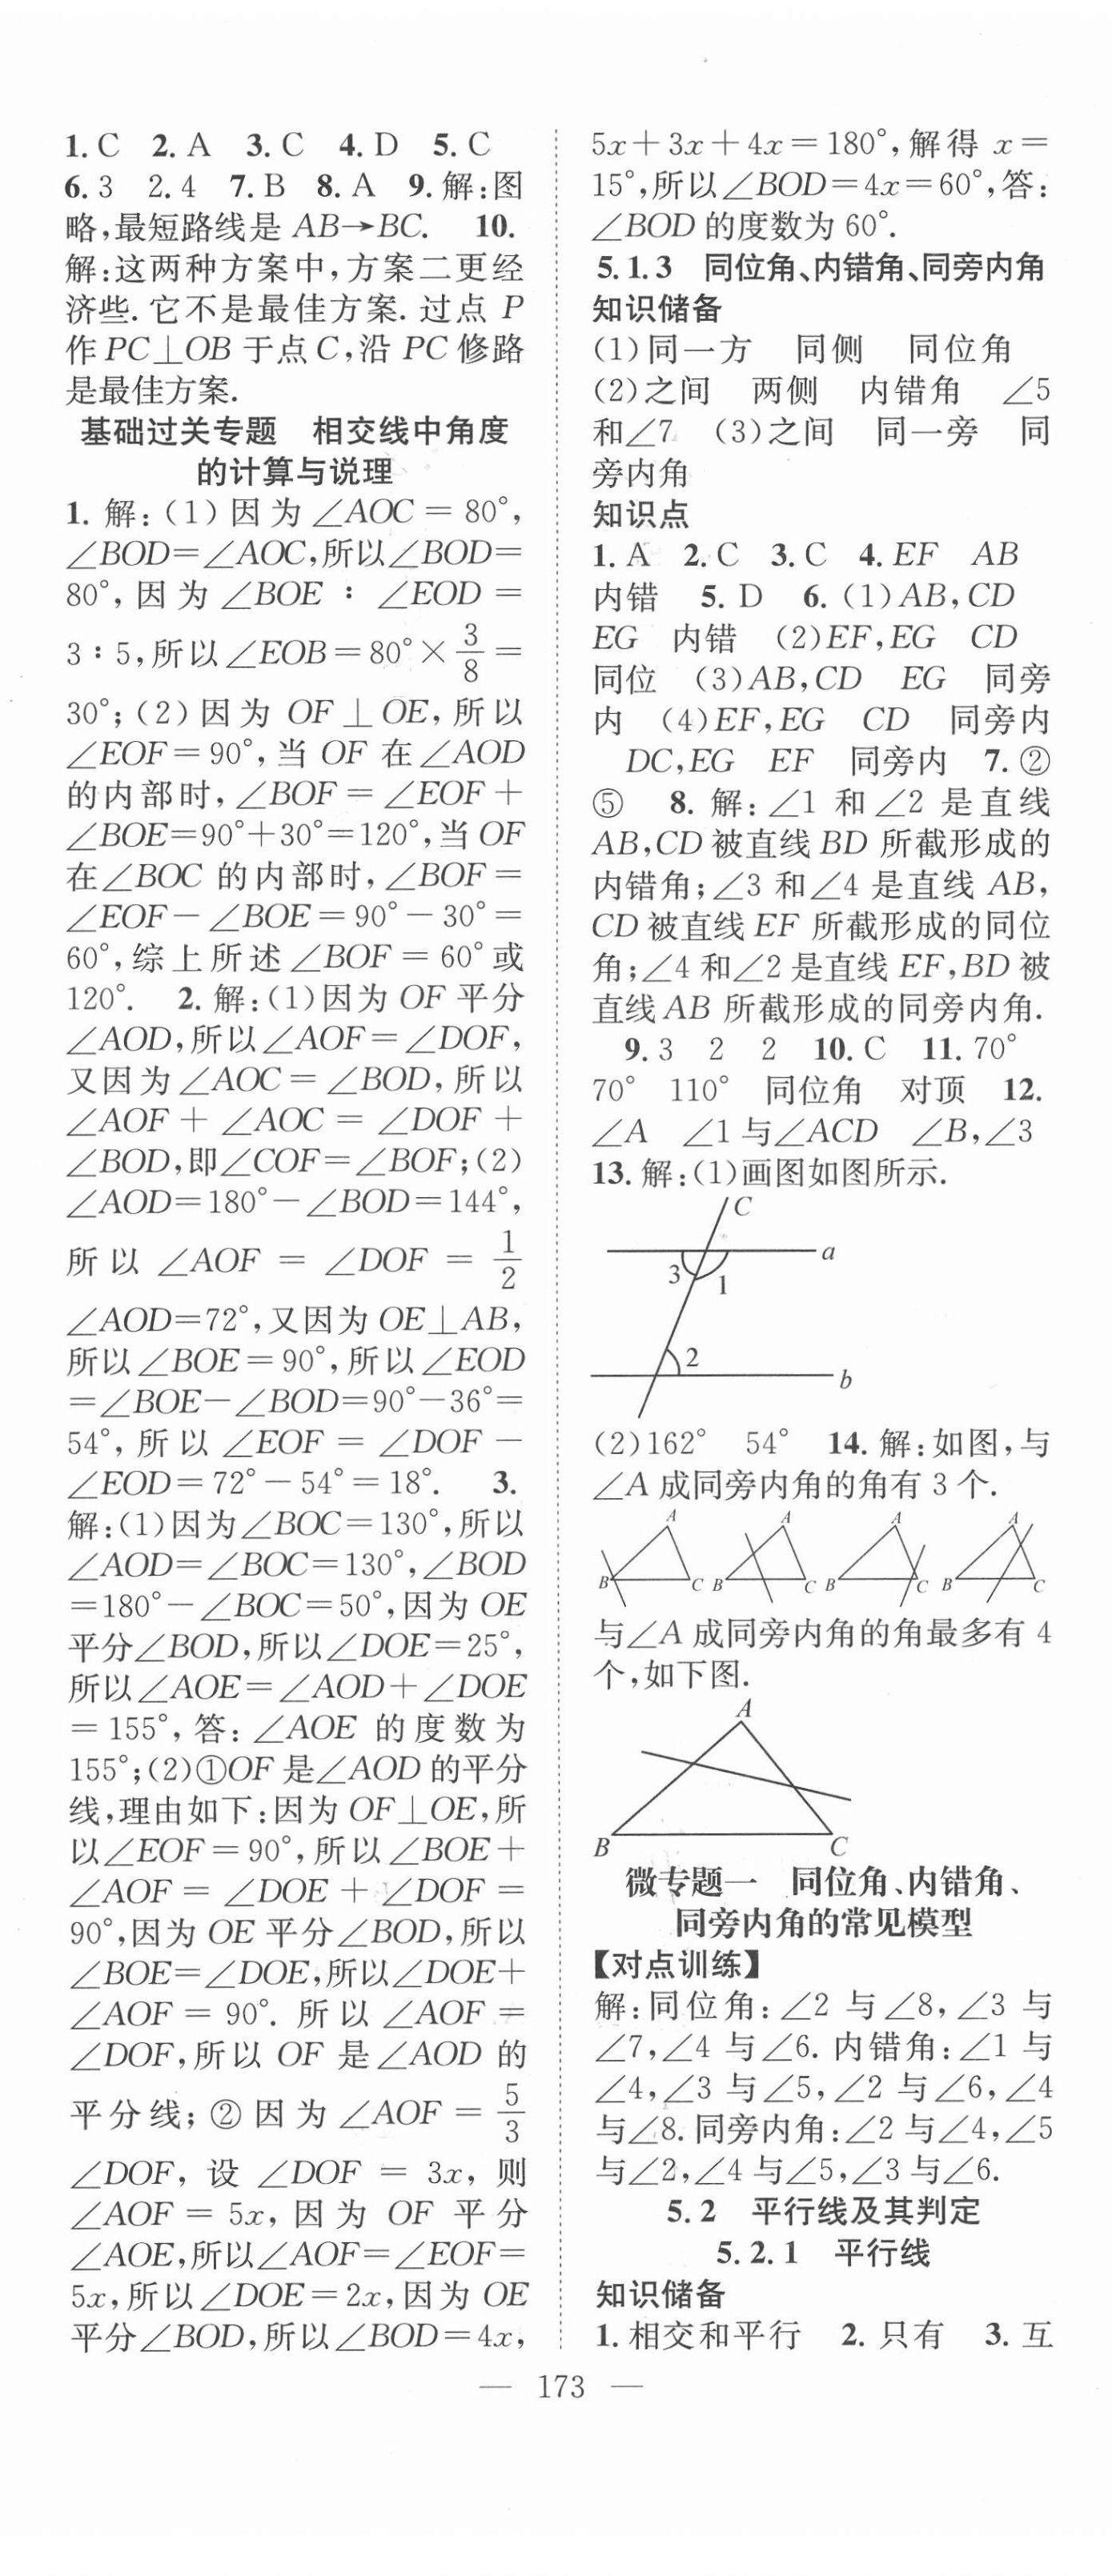 1. C 2. A 3. C 4. D 5. C
6. 3 2.4 7. B 8. A 9. 解:图
略,最短路线是 AB→BC. 10.
解:这两种方案中,方案二更经
济些. 它不是最佳方案. 过点 P
作 PC⊥OB 于点 C,沿 PC 修路
是最佳方案.
基础过关专题 相交线中角度
的计算与说理
1. 解:(1)因为∠AOC=80°,
∠BOD=∠AOC,所以∠BOD=
80°,因为∠BOE∶∠EOD=
3∶5,所以∠EOB=80°×3/8=
30°;(2)因为 OF⊥OE,所以
∠EOF=90°,当 OF 在∠AOD
的内部时,∠BOF=∠EOF+
∠BOE=90°+30°=120°,当 OF
在∠BOC 的内部时,∠BOF=
∠EOF-∠BOE=90°-30°=
60°,综上所述∠BOF=60°或
120°. 2. 解:(1)因为 OF 平分
∠AOD,所以∠AOF=∠DOF,
又因为∠AOC=∠BOD,所以
∠AOF+∠AOC=∠DOF+
∠BOD,即∠COF=∠BOF;(2)
∠AOD=180°-∠BOD=144°,
所以∠AOF=∠DOF=1/2
∠AOD=72°,又因为 OE⊥AB,
所以∠BOE=90°,所以∠EOD
=∠BOE-∠BOD=90°-36°=
54°,所以∠EOF=∠DOF-
∠EOD=72°-54°=18°. 3.
解:(1)因为∠BOC=130°,所以
∠AOD=∠BOC=130°,∠BOD
=180°-∠BOC=50°,因为 OE
平分∠BOD,所以∠DOE=25°,
所以∠AOE=∠AOD+∠DOE
=155°,答:∠AOE 的度数为
155°;(2)①OF 是∠AOD 的平分
线,理由如下:因为 OF⊥OE,所
以∠EOF=90°,所以∠BOE+
∠AOF=∠DOE+∠DOF=
90°,因为 OE 平分∠BOD,所以
∠BOE=∠DOE,所以∠DOE+
∠AOF=90°. 所以∠AOF=
∠DOF,所以 OF 是∠AOD 的
平分线;②因为∠AOF=5/3
∠DOF,设∠DOF=3x,则
∠AOF=5x,因为 OF 平分
∠AOE,所以∠AOF=∠EOF=
5x,所以∠DOE=2x,因为 OE
平分∠BOD,所以∠BOD=4x,
5x+3x+4x=180°,解得 x=
15°,所以∠BOD=4x=60°,答:
∠BOD 的度数为 60°.
5.1.3 同位角、内错角、同旁内角
知识储备
(1)同一方 同侧 同位角
(2)之间 两侧 内错角 ∠5
和∠7 (3)之间 同一旁 同
旁内角
知识点
1. A 2. C 3. C 4. EF AB
内错 5. D 6. (1)AB,CD
EG 内错 (2)EF,EG CD
同位 (3)AB,CD EG 同旁
内 (4)EF,EG CD 同旁内
DC,EG EF 同旁内 7. ②
⑤ 8. 解:∠1 和∠2 是直线
AB,CD 被直线 BD 所截形成的
内错角;∠3 和∠4 是直线 AB,
CD 被直线 EF 所截形成的同位
角;∠4 和∠2 是直线 EF,BD 被
直线 AB 所截形成的同旁内角.
9. 3 2 2 10. C 11. 70°
70° 110° 同位角 对顶 12.
∠A ∠1 与∠ACD ∠B,∠3
13. 解:(1)画图如图所示.
C
a
3 1
2
b
(2)162° 54° 14. 解:如图,与
∠A 成同旁内角的角有 3 个.
A A A A
B C B C B C B C
与∠A 成同旁内角的角最多有 4
个,如下图.
A
B C
微专题一 同位角、内错角、
同旁内角的常见模型
【对点训练】
解:同位角:∠2 与∠8,∠3 与
∠7,∠4 与∠6. 内错角:∠1 与
∠4,∠3 与∠5,∠2 与∠6,∠4
与∠8. 同旁内角:∠2 与∠4,∠5
与∠2,∠4 与∠5,∠3 与∠6.
5.2 平行线及其判定
5.2.1 平行线
知识储备
1. 相交和平行 2. 只有 3. 互
— 173 —